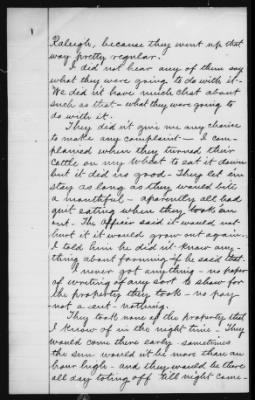 Raleigh, because they went up that
way pretty regular.
I did not hear any of them say
what they were going to do with it.-
We did n't have much chat about
such as that - what they were going to
do with it.
They did n't give me any chance
to make any complaint - I com-
plained when they turned their
cattle on my wheat to eat it down
but it did no good - They let em
stay as long as they would bite
a mouthful - aparently all had
quit eating when they took em
out. The officer said it would not
hurt it it would grow out again.
I told him he did n't know any-
thing about farming if he said that.
I never got anything - no paper
of writing of any sort to show for
the property they took - no pay
not a cent - nothing.
They took none of the property that
I know of in the night time - They
would come there early sometimes
the sun would n't be more than an
hour high - and they would be there
all day toting off till night came -